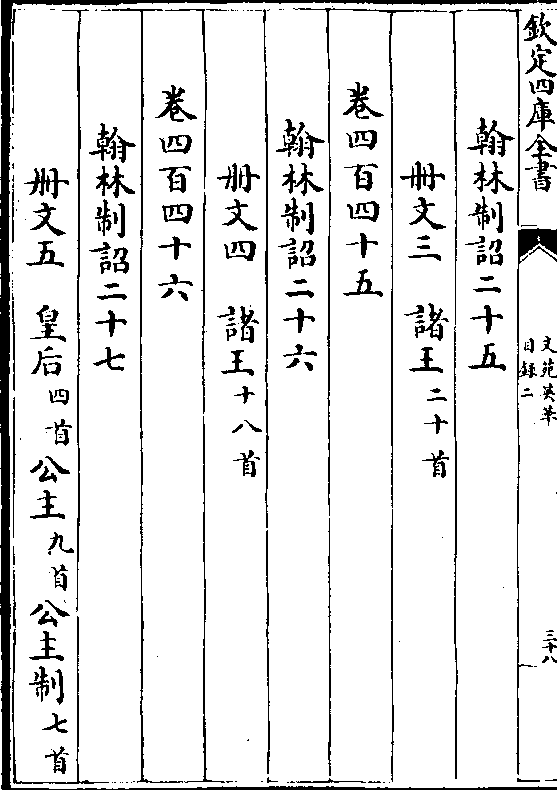 欽定四庫全書
文苑英華
目錄二
三十八
翰林制詔二十五
冊文三　諸王二十首
卷四百四十五
翰林制詔二十六
冊文四　諸王十八首
卷四百四十六
翰林制詔二十七
冊文五　皇后四首公主九首公主制七首